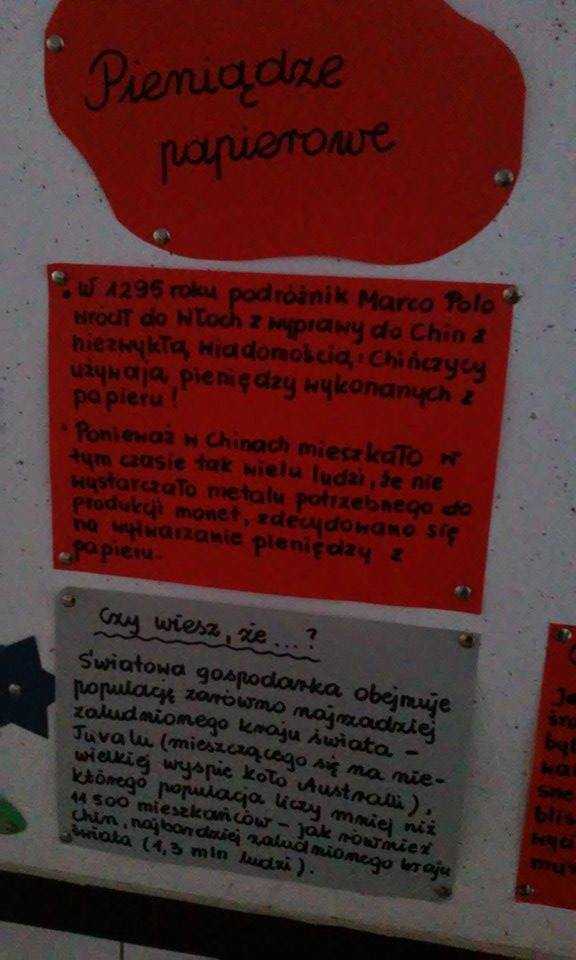 Pieniądze
papierowe
• W 1295 roku podróżnik Marco Polo
wrócił do Włoch z wyprawy do Chin z
niezwykłą wiadomością: Chińczycy
używają pieniędzy wykonanych z
papieru!
• Ponieważ w Chinach mieszkało w
tym czasie tak wielu ludzi, że nie
wystarczało metalu potrzebnego do
produkcji monet, zdecydowano się
na wytwarzanie pieniędzy z
papieru.
Czy wiesz, że ...?
Światowa gospodarka obejmuje
populację zarówno najrzadziej
zaludnionego kraju świata -
Tuvalu (mieszczącego się na nie-
wielkiej wyspie koło Australii),
którego populacja liczy mniej niż
11 500 mieszkańców - jak również
Chin, najbardziej zaludnionego kraju
świata (1,3 mln ludzi).